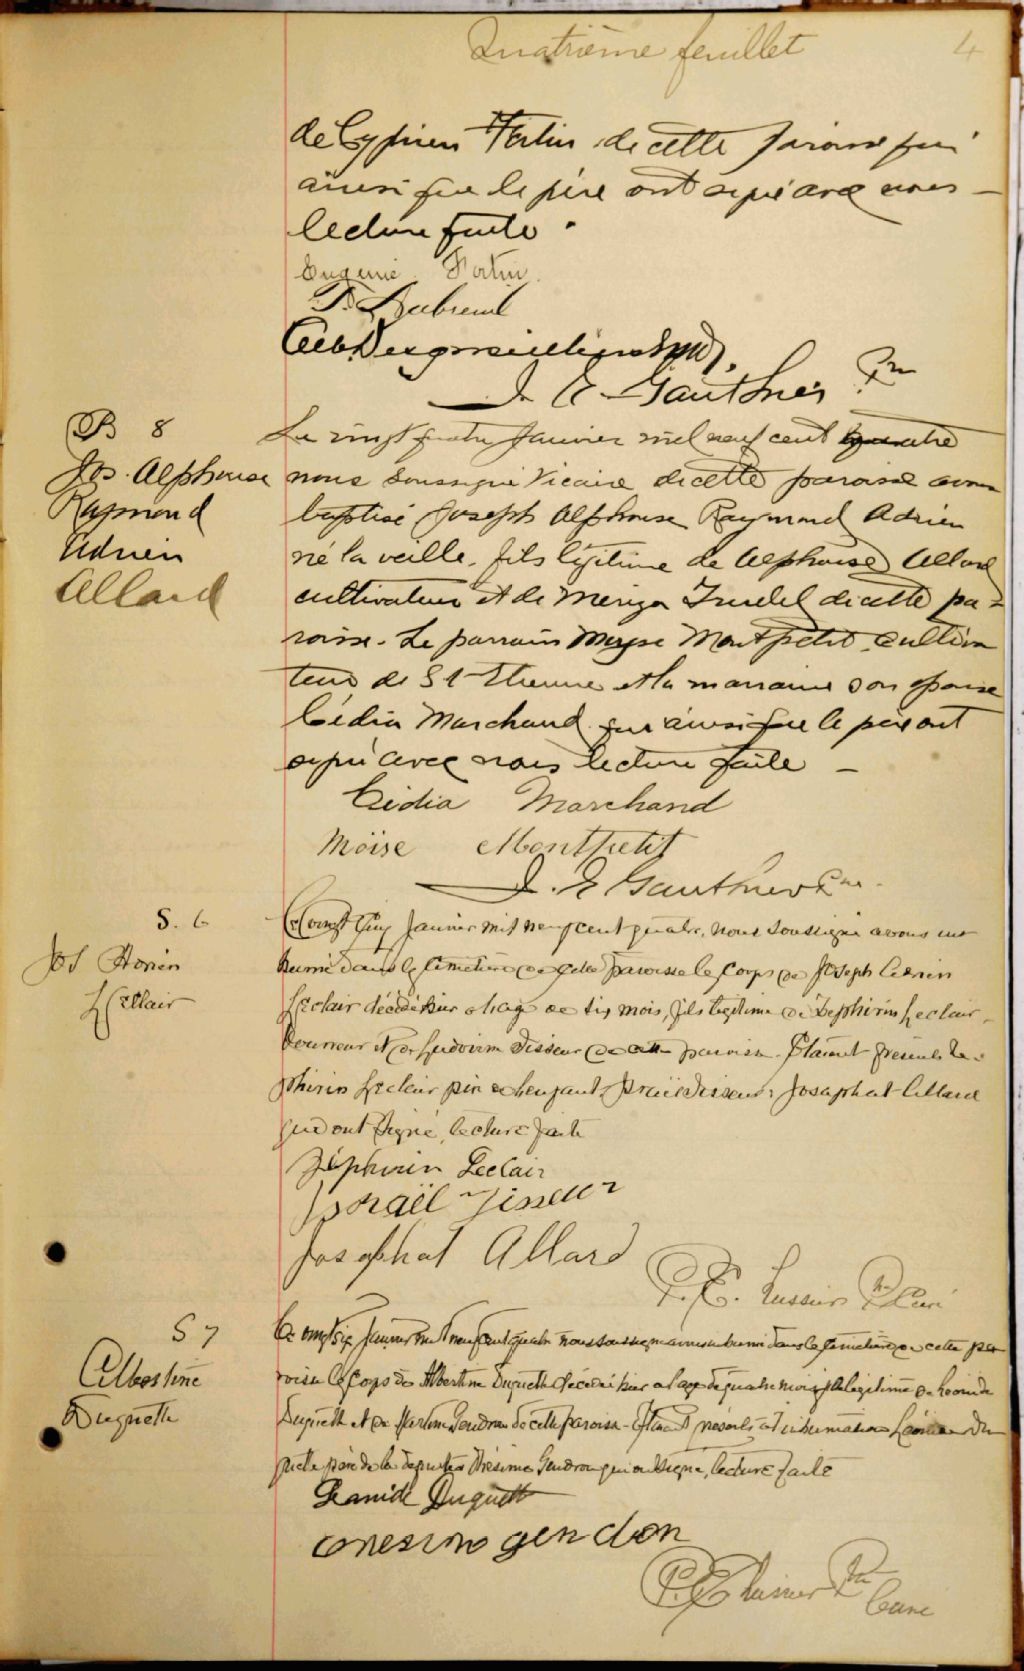 Quatrième feuillet 4
de Cyprien Fortin de cette paroisse qui
ainsi que le père ont signé avec nous —
lecture faite.
Eugenie Fortin
T. Dubreuil
J. E. Gauthier Ptre
B 8
Jos. Alphonse
Raymond
Adrien
Allard
Le vingt quatre Janvier mil neuf cent quatre
nous soussigné Vicaire de cette paroisse avons
baptisé Joseph Alphonse Raymond Adrien
né la veille, fils légitime de Alphonse Allard
cultivateur et de Trudel de cette pa-
roisse. Le parrain Moyse Montpetit cultiva
teur de St Etienne et la marraine son épouse
Cédia Marchand qui ainsi que le père ont
signé avec nous lecture faite —
Cédia Marchand
Moïse Montpetit
J. E. Gauthier Ptre
S. 6
Jos
Leclair
Le vingt Janvier mil neuf cent quatre, nous soussigné avons in
humé dans le cimetière de cette paroisse le corps de Joseph
Leclair décédé hier à l'age de six mois, fils légitime de Zéphirin Leclair
et de Ludivine Tisseur de cette paroisse. Etaient présents Zé-
phirin Leclair père de l'enfant, Israël Tisseur, Josaphat Allard
qui ont signé, lecture faite
Zéphirin Leclair
Israël Tisseur
Josaphat Allard
P. E. Lussier Ptre Curé
S 7
Albertine
Duquette
Le vingt six Janvier mil neuf cent quatre nous soussigné avons inhumé dans le cimetière de cette pa
roisse le corps de Albertine Duquette décédée hier a l'age de quatre mois fille légitime de Léonide
Duquette et de Gendron de cette paroisse. Etaient présents à l'inhumation Léonide Du
quette père de la défunte Onésime Gendron qui ont signé, lecture faite
Leonide Duquette
onesime gendron
P. E. Lussier Ptre
Curé